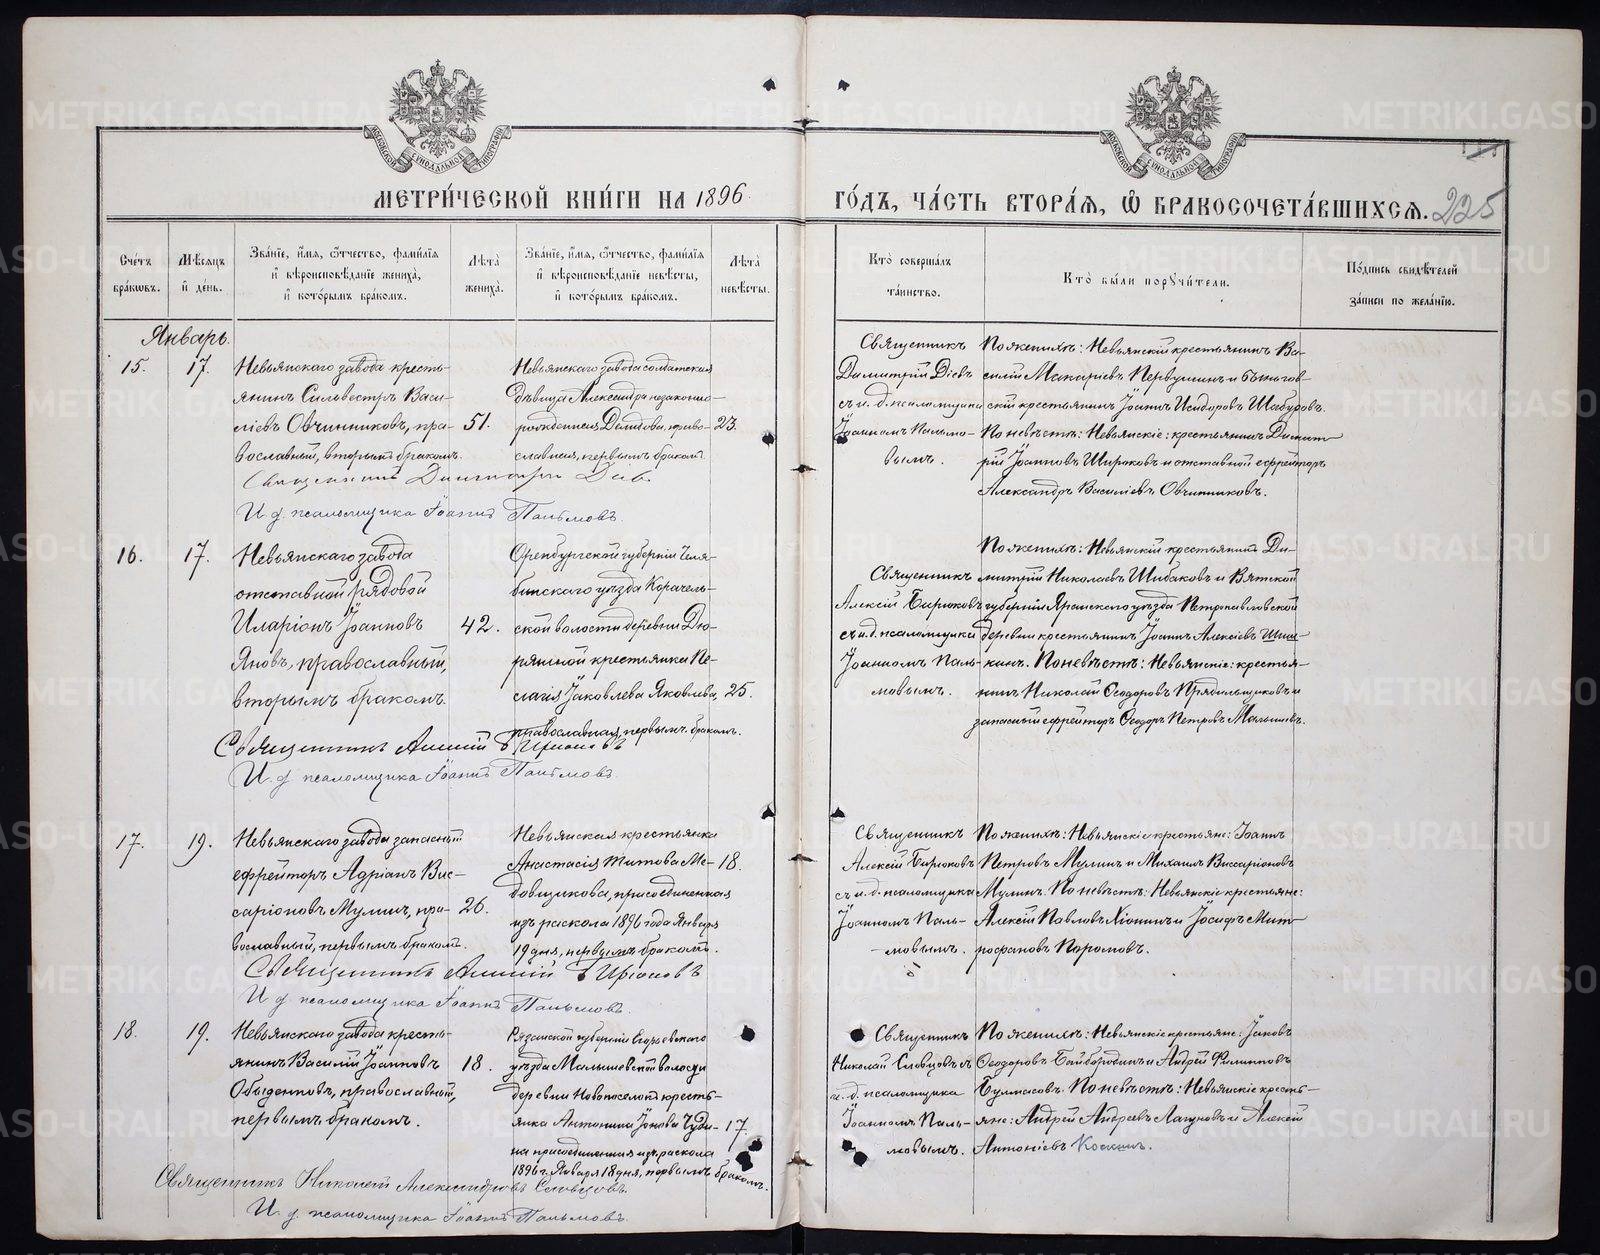 МЕТРИ́ЧЕСКОЙ КНИ́ГИ НА 1896
ГО́ДЪ, ЧА́СТЬ ВТОРА́Я, Ѡ БРАКОСОЧЕТА́ВШИХСЯ.
225
Сче́тъ бра́кωвъ.
Мѣ́сяцъ и де́нь.
Зва́нїе, и́мя, ѿтчество, фами́лїя и вѣроисповѣ́данїе жениха̀, и кото́рымъ бра́комъ.
Лѣта̀ жениха̀.
Зва́нїе, и́мя, ѿтчество, фами́лїя и вѣроисповѣ́данїе невѣ́сты, и кото́рымъ бра́комъ.
Лѣта̀ невѣ́сты.
Кто̀ соверша́лъ та́инство.
Кто̀ бы́ли порꙋчи́тели.
По́дпись свидѣ́телей за́писи по жела́нїю.
Январь.
15.
17.
Невьянскаго завода кресть-
янинъ Сильвестръ Васи-
ліевъ Овчинниковъ, пра-
вославный, вторымъ бракомъ.
51.
Невьянскаго завода солдатская
дѣвица Александра незаконно-
рожденная Демидова, право-
славная, первымъ бракомъ.
23.
Священникъ
Димитрій Діевъ
съ и. д. псаломщика
Іоанномъ Пальмо-
вымъ.
По женихѣ: Невьянскій крестьянинъ Ва-
силій Макаріевъ Первушинъ и Быньгов-
скій крестьянинъ Іоаннъ Исидоровъ Шабуровъ.
По невѣстѣ: Невьянскіе: крестьянинъ Димит-
рій Іоанновъ Широковъ и отставной ефрейторъ
Александръ Василіевъ Овчинниковъ.
Священникъ Димитрій Діевъ.
И. д. псаломщика Іоаннъ Пальмовъ.
16.
17.
Невьянскаго завода
отставной рядовой
Иларіонъ Іоанновъ
Яновъ, православный,
вторымъ бракомъ.
42.
Оренбургской губерніи Челя-
бинскаго уѣзда Карачель-
ской волости деревни Дю-
рягиной крестьянка Пе-
лагія Іаковлева Яковлева,
православная, первымъ бракомъ.
25.
Священникъ
Алексій Бирюковъ
съ и. д. псаломщика
Іоанномъ Паль-
мовымъ.
По женихѣ: Невьянскій крестьянинъ Ди-
митрій Николаевъ Шибаковъ и Вятской
губерніи Яранскаго уѣзда Петропавловской
деревни крестьянинъ Іоаннъ Алексіевъ Шиш-
кинъ. По невѣстѣ: Невьянскіе: крестья-
нинъ Николай Ѳеодоровъ Прядильщиковъ и
запасный ефрейторъ Ѳеодоръ Петровъ Малышевъ.
Священникъ Алексій Бирюковъ
И. д. псаломщика Іоаннъ Пальмовъ.
17.
19.
Невьянскаго завода запасный
ефрейторъ Адріанъ Вис-
саріоновъ Мулинъ, пра-
вославный, первымъ бракомъ.
26.
Невьянская крестьянка
Анастасія Титова Ме-
довщикова, присоединенная
изъ раскола 1896 года Января
19 дня, первымъ бракомъ.
18.
Священникъ
Алексій Бирюковъ
съ и. д. псаломщика
Іоанномъ Паль-
мовымъ.
По женихѣ: Невьянскіе крестьяне: Іоаннъ
Петровъ Мулинъ и Михаилъ Виссаріоновъ
Мулинъ. По невѣстѣ: Невьянскіе крестьяне:
Алексій Павловъ Хіонинъ и Іосифъ Мит-
рофановъ Поромовъ.
Священникъ Алексій Бирюковъ
И. д. псаломщика Іоаннъ Пальмовъ.
18.
19.
Невьянскаго завода кресть-
янинъ Василій Іоанновъ
Обыденновъ, православный,
первымъ бракомъ.
18.
Рязанской губерніи Егорьевскаго
уѣзда Малышевской волости
деревни Новопоселкой кресть-
янка Антонина Іонова Чуди-
на присоединенная изъ раскола
1896 г. Января 18 дня, первымъ бракомъ.
17.
Священникъ
Николай Словцовъ съ
и. д. псаломщика
Іоанномъ Паль-
мовымъ.
По женихѣ: Невьянскіе крестьяне: Іаковъ
Ѳеодоровъ Байбородинъ и Андрей Филипповъ
Бурмасовъ. По невѣстѣ: Невьянскіе кресть-
яне: Андрей Андреевъ Лагуновъ и Алексій
Антоніевъ Коскинъ.
Священникъ Николай Александровъ Словцовъ.
И. д. псаломщика Іоаннъ Пальмовъ.